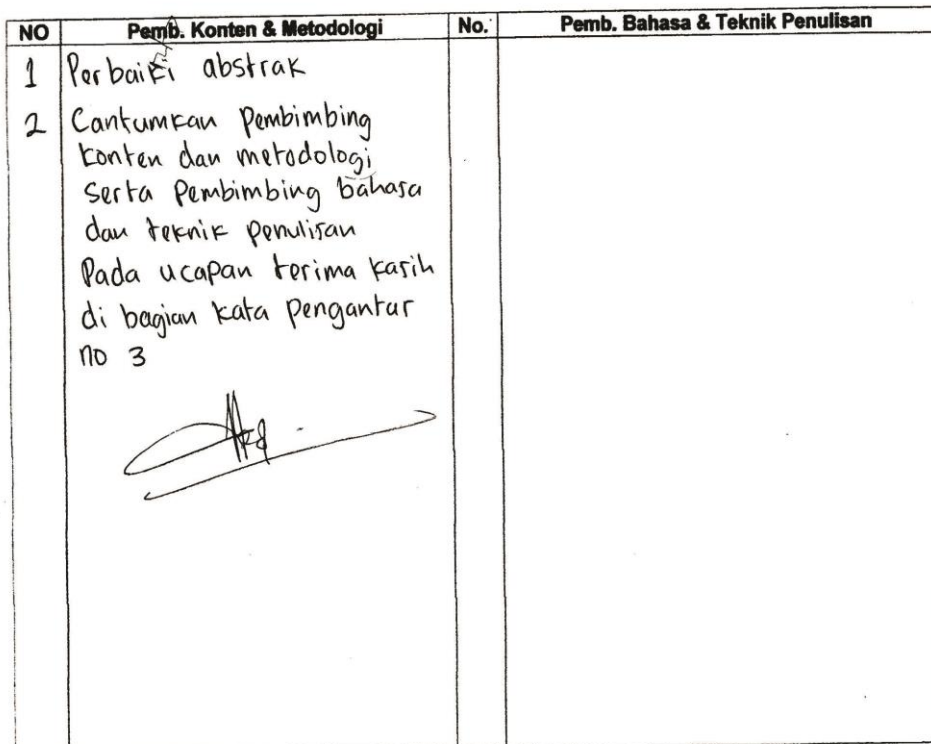 NO Pemb. Konten & Metodologi No. Pemb. Bahasa & Teknik Penulisan
1 Perbaiki abstrak
2 Cantumkan Pembimbing
konten dan metodologi
serta Pembimbing bahasa
dan teknik penulisan
Pada ucapan terima kasih
di bagian kata pengantar
no 3